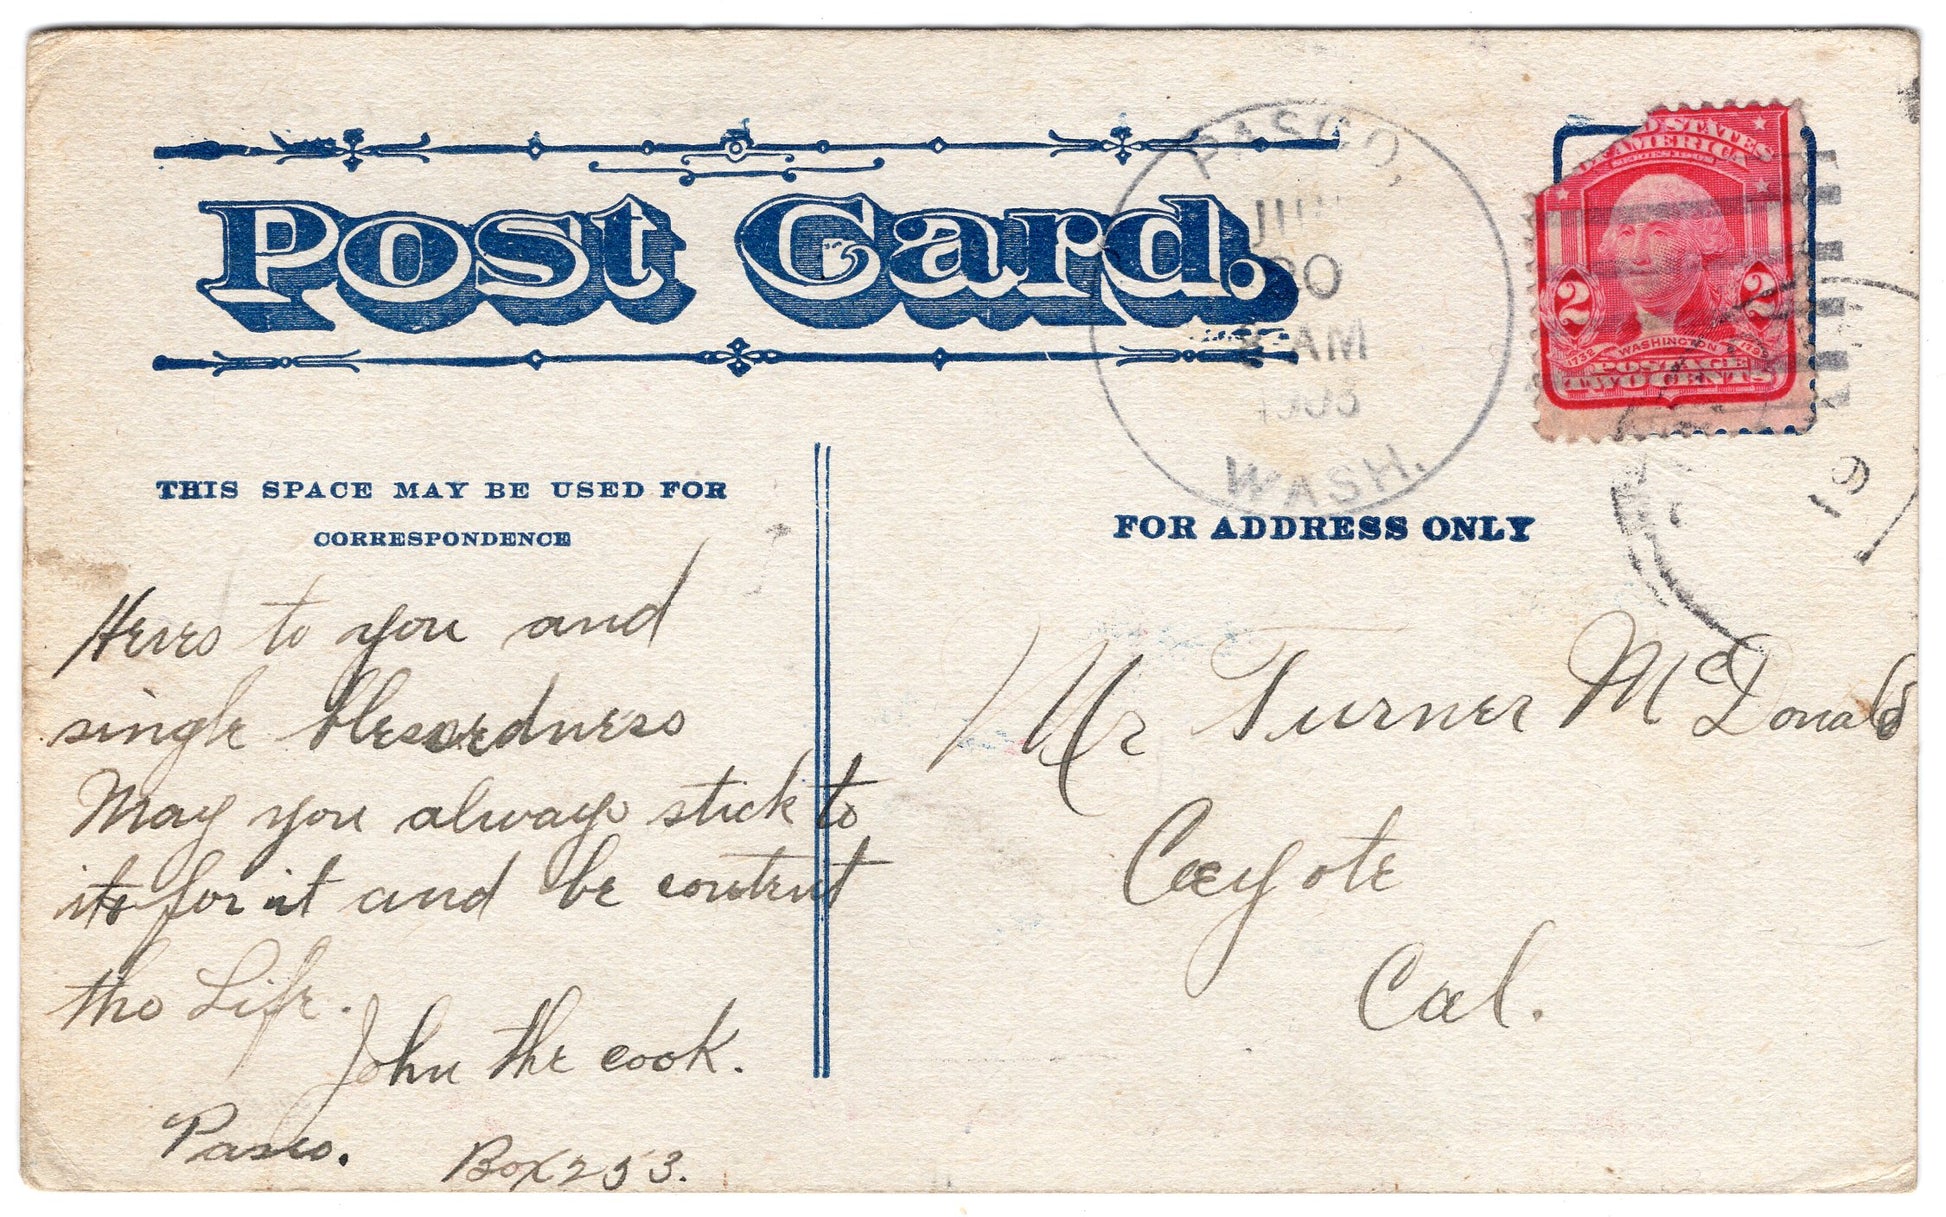 Post Card.
PASCO,
30
AM
WASH.
UNITED STATES
OF AMERICA
2 2
1732 WASHINGTON 1799
POSTAGE
TWO CENTS
THIS SPACE MAY BE USED FOR
CORRESPONDENCE
FOR ADDRESS ONLY
Heres to you and
single blessedness
May you always stick to
it for it and be content
the Life.
John the cook.
Pasco.
Box 253.
Mr Turner McDonald
Coyote
Cal.